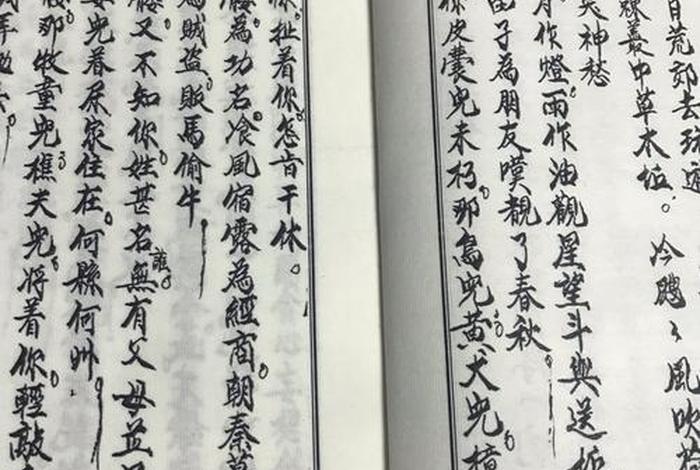 日荒郊去環
叢中草木位。冷颼颼風吹
鬼神愁
月作燈雨作油觀星望斗與送
子為朋友嘆觀了春秋
你皮囊兒未朽那鳥兒黃犬兒
扯着你怎肯干休。
為功名飡風宿露為經商朝秦暮
為賊盜販馬偷牛
又不知你姓甚名誰無有父母並
兒春原家住在何縣何州
那牧童兒樵夫兒將着你輕敲